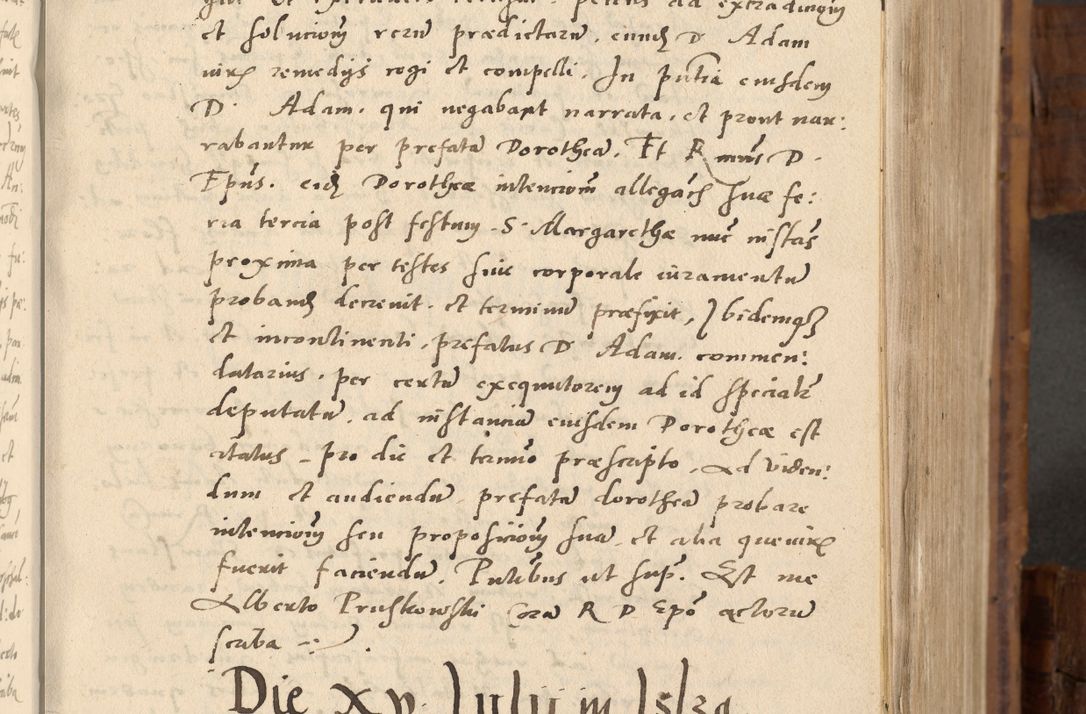 et solucionem rerum prædictarum, eund D Adam
remedijs cogi et compelli. In pntia eiusdem
D. Adam. qui negabant narrata, et prout nar:
rabantur per prefatam Dorotheam. Et R mus D.
Epus. eid Dorotheæ intencionem allegand suæ fe:
ria tercia post festum S. Margarethæ nunc instans
proxima per testes siue corporale iuramentum
proband decreuit. et terminum præfixit, Ibidemqz
et incontinenti, prefatus D Adam. commen:
datarius, per certum exequutorem ad id specialr
deputatum, ad instanciam eiusdem Dorotheæ est
citatus – pro die et termino præscripto, Ad viden:
dum et audiendum prefatam dorotheam probare
intencionem seu proposicionem suam, et alia
fuerit faciendum. Pntibus ut sup. Est me
Alberto Pruskowski Cora R D Epo actorum
scriba –:
Die XV. Iulij in Ilsza